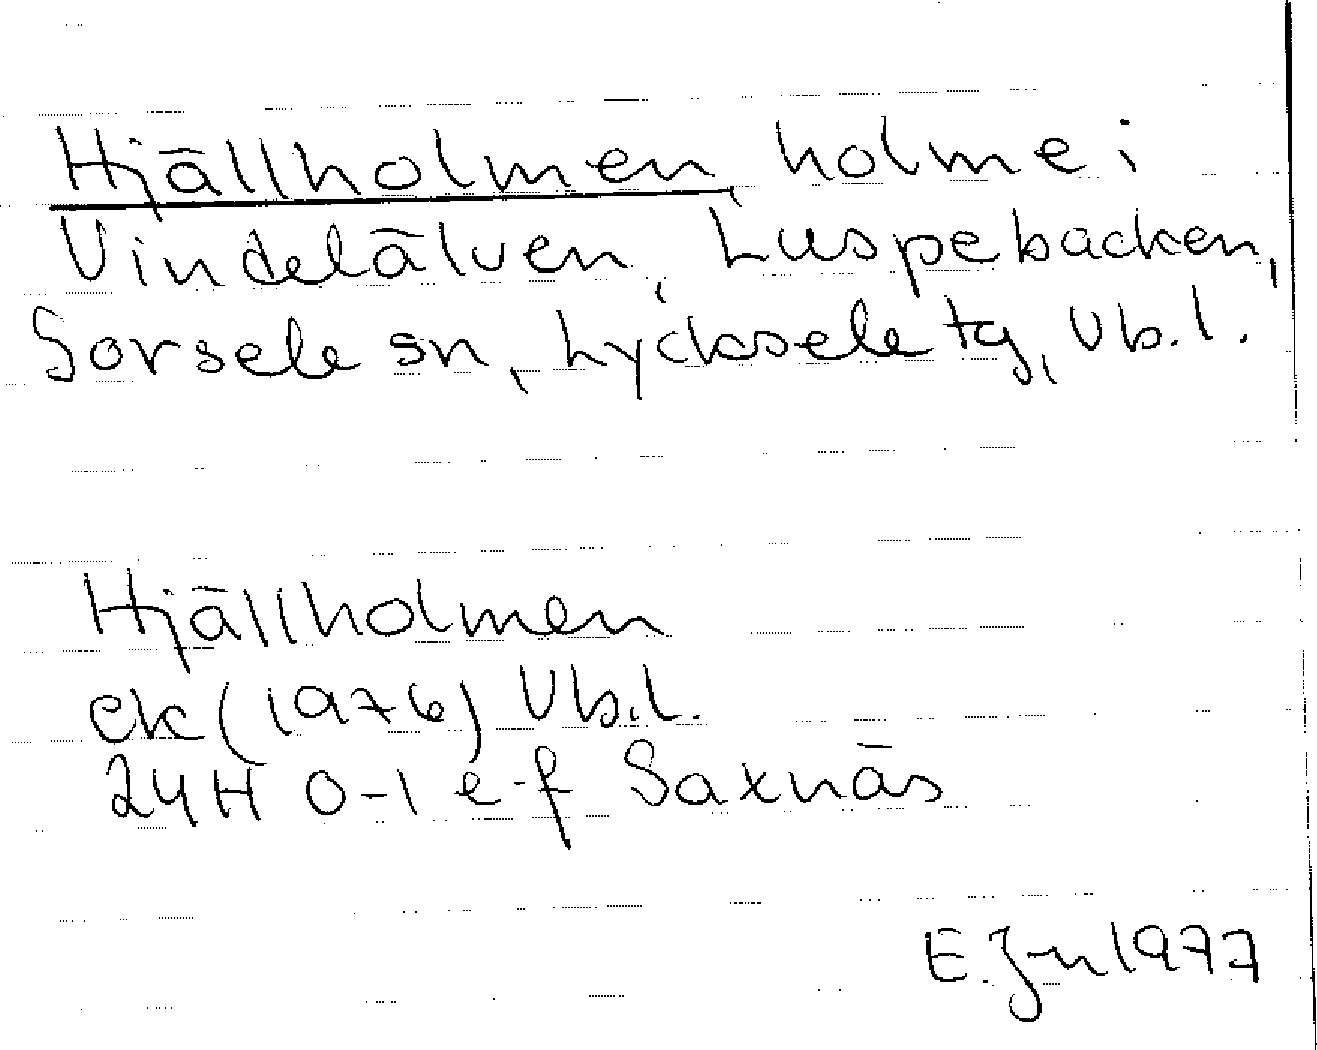 Hjällholmen, holme i
Vindelälven, Luspebacken,
Sorsele sn, Lycksele tg, Vb.l.
Hjällholmen
ek (1976) Vb.l.
24H 0-1 e-f Saxnäs
E. J-n 1977